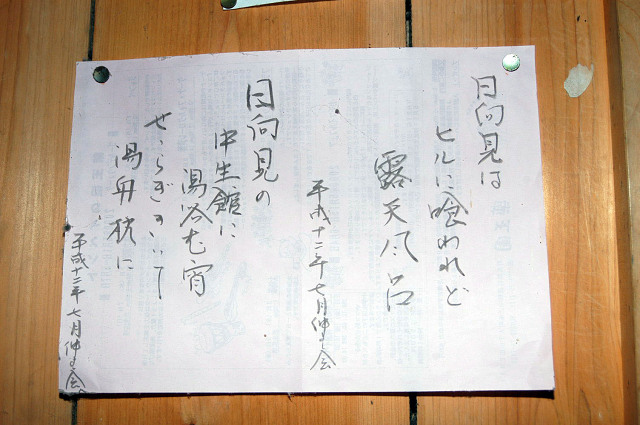 日向見は
ヒルに喰われど
露天風呂
平成十二年七月仲よ会
日向見の
中生館に
湯浴む宵
せゝらぎきいて
湯舟枕に
平成十二年七月仲よ会